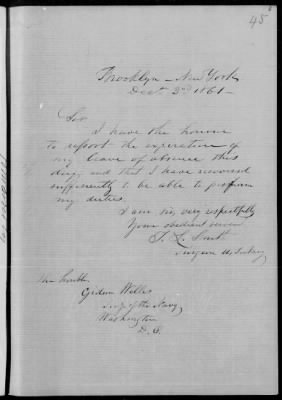 45
Brooklyn - New York
Dect. 2nd 1861 -
Sir
I have the honour
to report the expiration of
my leave of absence this
day, and that I have recovered
sufficiently to be able to perform
my duties.
I am sir, very respectfully
Your obedient
Surgeon U.S. Navy
Gideon Welles
Secy of the Navy
Washington
D.C.